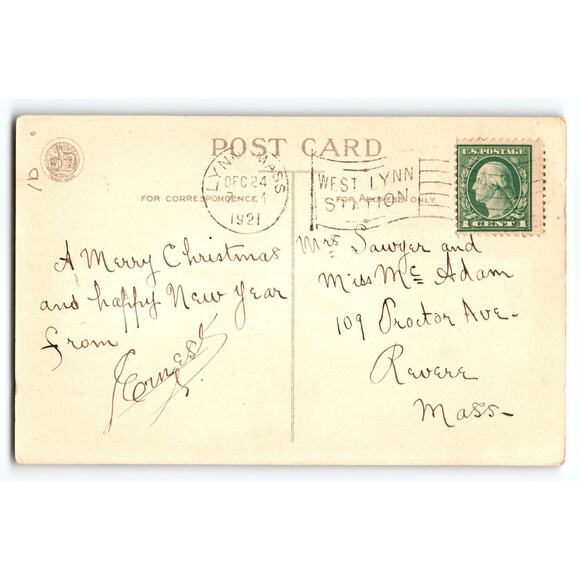 10
POST CARD
LYNN MASS
DEC 24
1921
WEST LYNN
STATION
U.S. POSTAGE
1 CENT 1
FOR CORRESPONDENCE
FOR ADDRESS ONLY
A Merry Christmas
and happy New Year
from
Ernest
Mrs Sawyer and
Miss Mc Adam
109 Proctor Ave-
Revere
Mass-